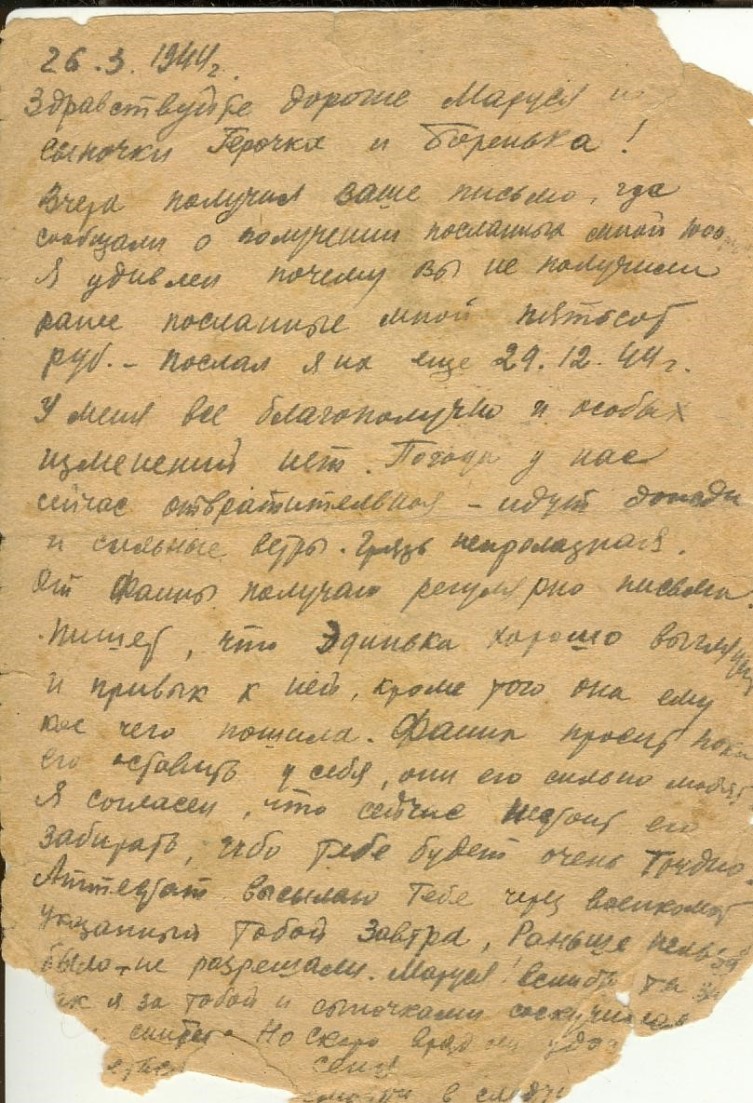 26.3.1944г.
Здравствуйте дорогие Маруся и
сыночки Герочка и Боренька!
Вчера получил ваше письмо, где
сообщали о получении посланных мной 1000
Я удивлен почему вы не получили
ранее посланные мной пятьсот
руб. - послал я их еще 29.12.44г.
У меня все благополучно и особых
изменений нет. Погода у нас
сейчас отвратительная - идут дожди
и сильные ветры. Грязь непролазная.
От Фаины получаю регулярно письма.
Пишет, что Эдинька хорошо выгляд
и привык к ней, кроме того она ему
кое чего пошила. Фаина просит пока
его оставить у себя, они его сильно любят
Я согласен, что сейчас не стоит его
забирать, ибо тебе будет очень трудно.
Аттестат высылаю тебе через военкомат
указанный тобой завтра, раньше нельзя
было - не разрешали. Маруся! если бы ты зн
як я за тобой и сыночками соскучился
Но скоро враг